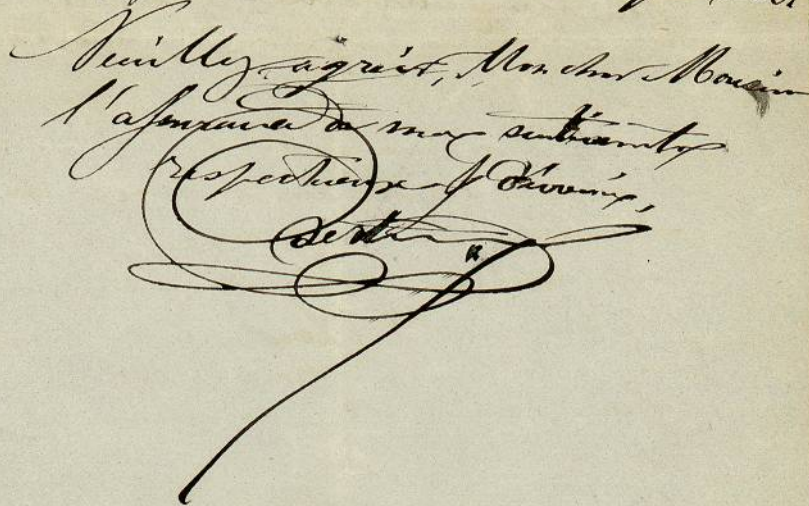 Veuillez agréer, Mon cher Monsieur
l'assurance de mes sentiments
respectueux & dévoués,